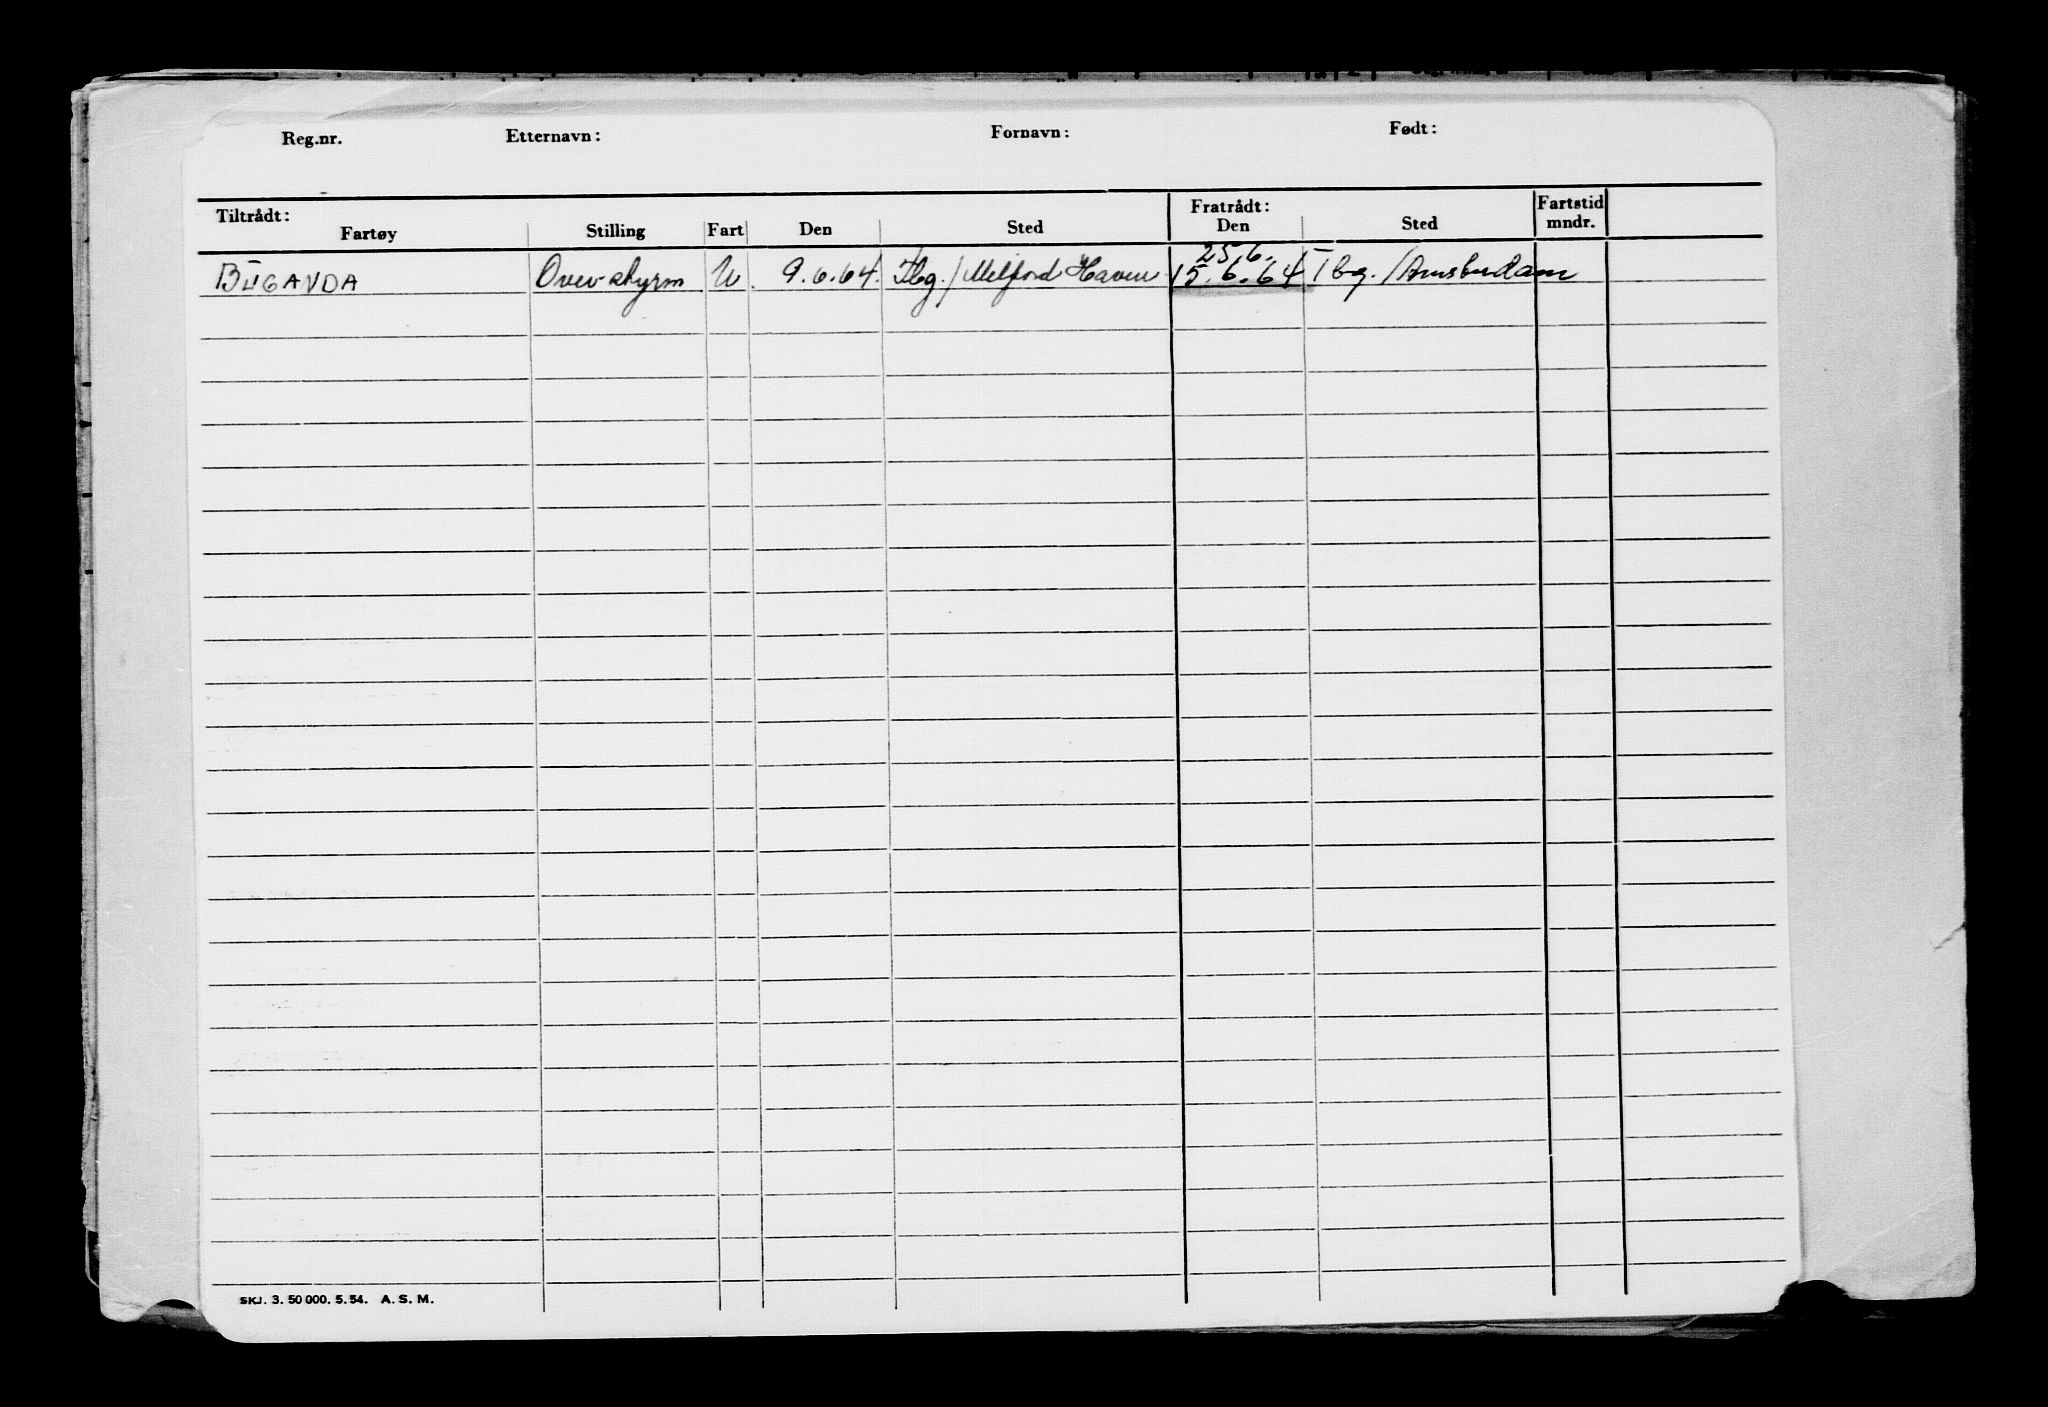 Reg.nr. Etternavn: Fornavn: Født:
Tiltrådt: Fratrådt: Fartstid
Fartøy Stilling Fart Den Sted Den Sted mndr.
25.6.
BUGANDA Overstyrm U 9.6.64. Tbg./Milford Haven 15.6.64 Tbg./Amsterdam
SKJ. 3. 50 000. 5. 54. A. S. M.